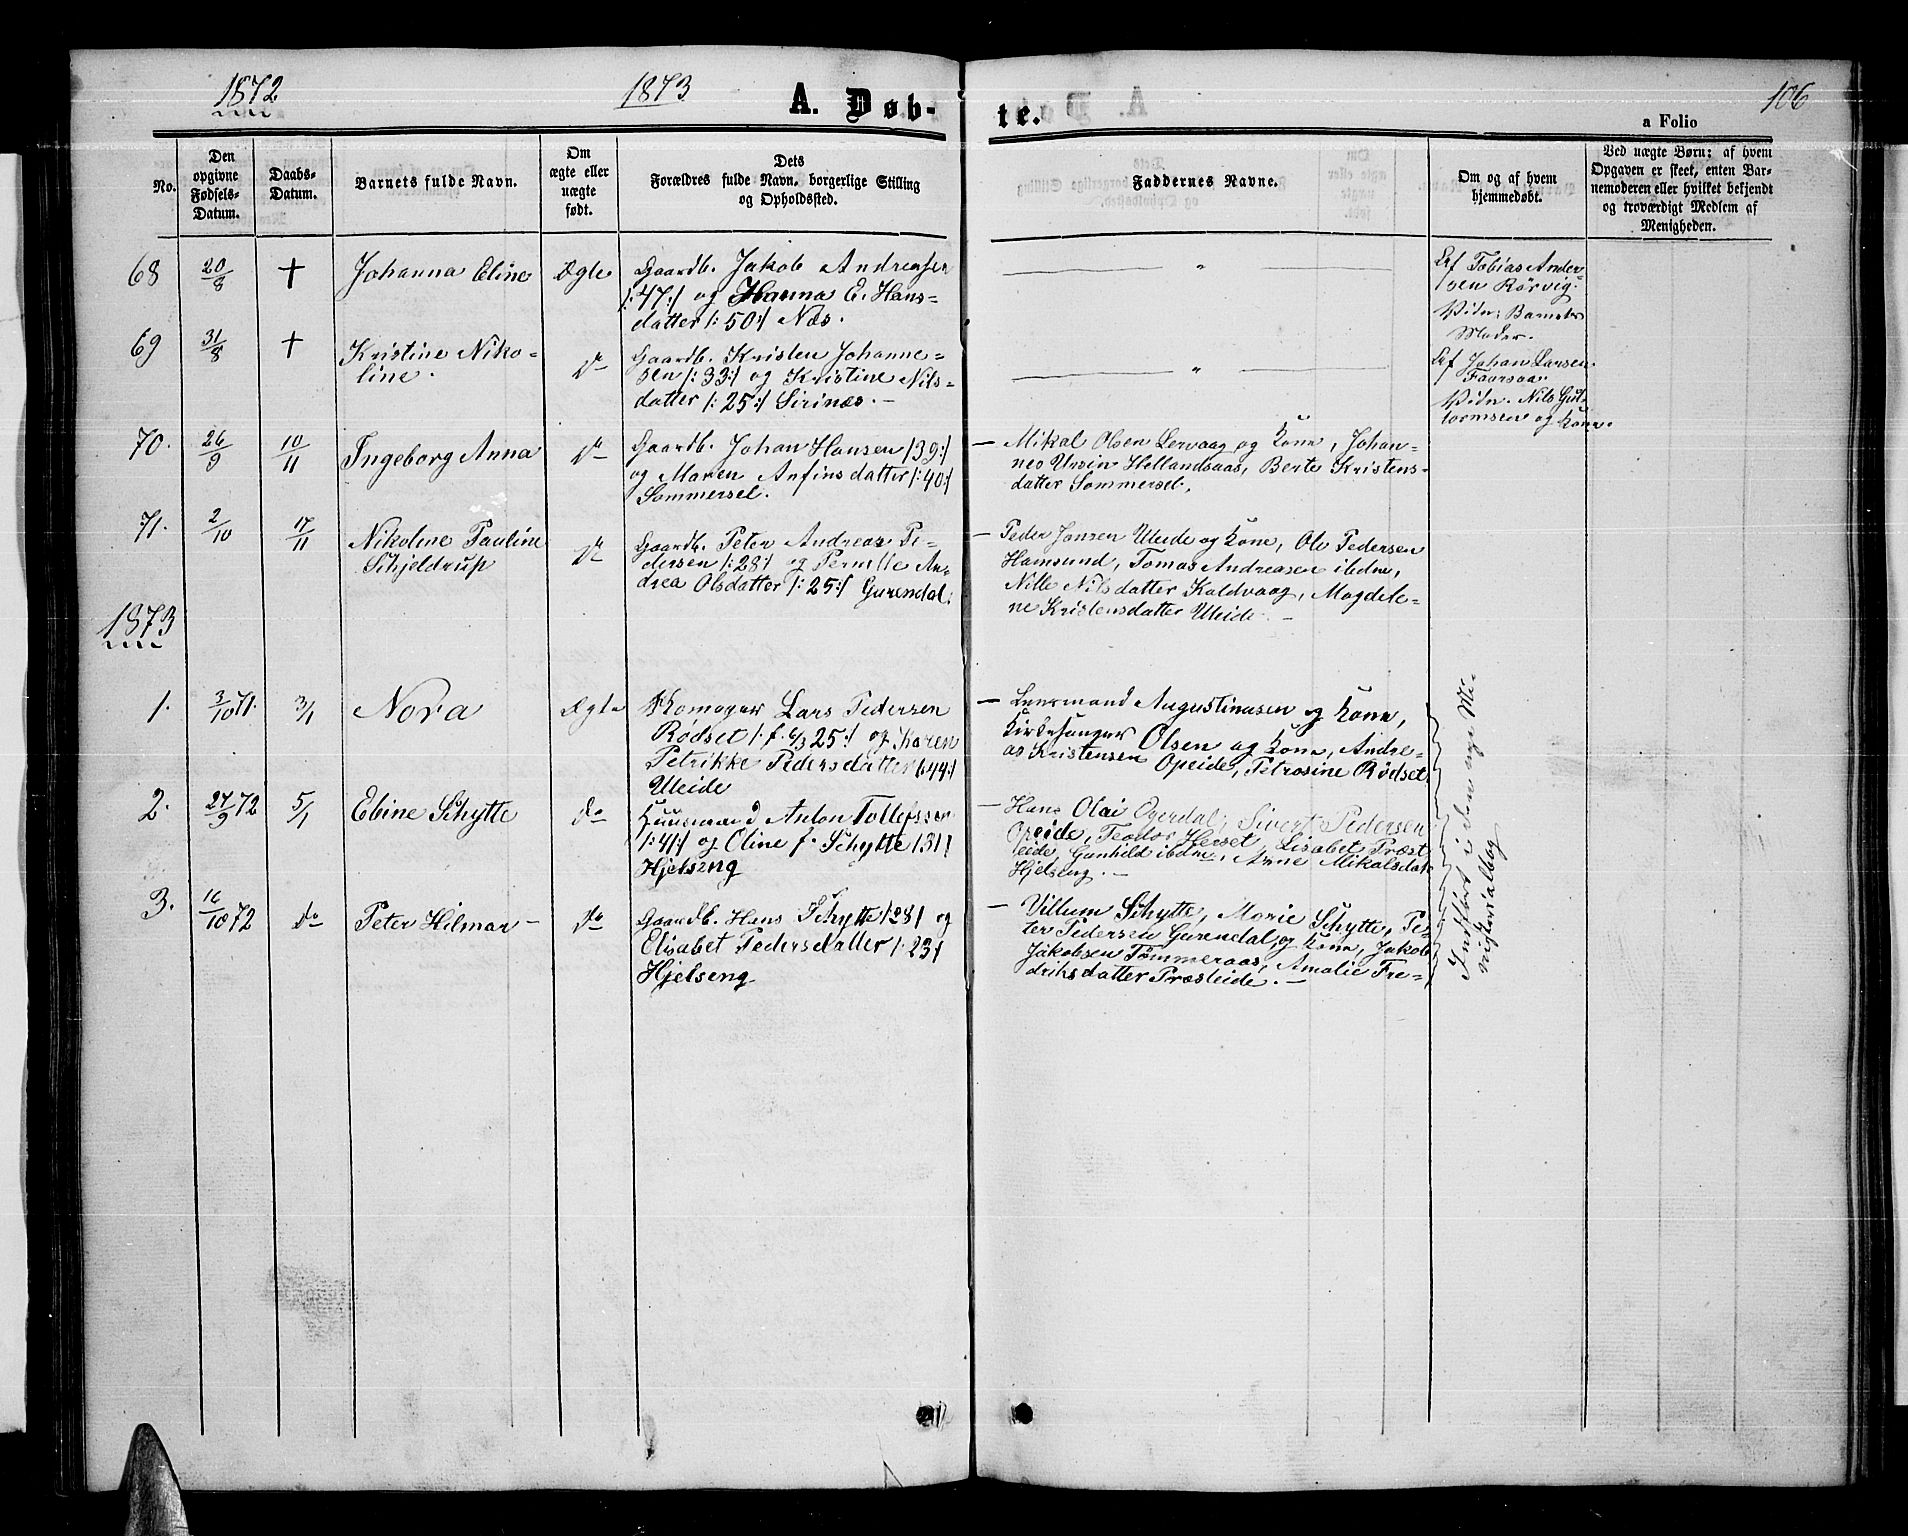 1872
1873
A. Døb-
te.
106
a Folio
No.
Den
opgivne
Fødsels-
Datum.
Daabs-
Datum.
Barnets fulde Navn.
Om
ægte eller
uægte
født.
Dets
Forældres fulde Navn, borgerlige Stilling
og Opholdssted.
Faddernes Navne.
Om og af hvem
hjemmedøbt.
Ved uægte Børn; af hvem
Opgaven er skeet, enten Bar-
nemoderen eller hvilket bekjendt
og troværdigt Medlem af
Menigheden.
68
20/8
+
Johanna Eline
Ægte
Gaardb. Jakob Andreassen
/:47:/ og Hanna E. Hans-
datter /:50:/ Næs.
— " —
Af Tobias Ander-
sen Rörvig.
Vidn: Barnets
Moder.
69
31/8
+
Kristine Niko-
line.
Do
Gaardb. Kristen Johanne-
sen /:33:/ og Kristine Nils-
datter /:25:/ Sirinæs. —
— " —
Af Johan Larsen
Vidn. Nils Gut-
tormsen og Kone.
70.
26/9
10/11
Ingeborg Anna
Do
Gaardb. Johan Hansen /39:/
og Maren Anfinsdatter /:40:/
Sommersel.
— Mikal Olsen Lervaag og Kone, Johan-
nes Ursin Hellandsaas, Berte Kristens-
datter Sommersel.
71.
2/10
17/11
Nikoline Pauline
Schjeldrup
Do
Gaardb. Peter Andreas Pe-
dersen /:28/ og Pernille An-
drea Olsdatter /:25:/ Gurendal.
— Peder Jansen Uleide og Kone, Ole Pedersen
Hamsund, Tomas Andreasen ibdm,
Nille Nilsdatter Kaldvaag, Magdele-
ne Kristensdatter Uleide. —
1873
1.
3/10 71.
3/1
Nora
Ægte
Komager Lars Pedersen
Rødset /: f. 6/3 25:/ og Karen
Petrikke Pedersdatter /44:/
Uleide
— Lensmand Augustinusen og Kone,
Kirkesanger Olsen og Kone, Andre-
as Kristensen Opeide, Petrosine Rödset
2.
27/9 72
5/1
Ebine Schytte
Do
Huusmand Anton Tollefsen
/:41:/ og Oline f. Schytte /31/
Hjelseng
— Hans Olai Ogerdal, Sivert Pedersen
Opeide, Teodor Herset, Lisabet Præst
eide Gunhild ibdm, Anne Mikalsdatr
Hjelseng. —
3.
16/10 72
Do
Peter Hilmar —
Do
Gaardb. Hans Schytte /28/ og
Elisabet Pedersdatter /:23/
Hjelseng
— Villum Schytte, Marie Schytte, Pe-
ter Pedersen Gurendal og Kone, Jakob
Jakobsen Tömmeraas, Amalie Fre-
driksdatter Præsteide. —
Indfört i den nye Mi-
nisterialbog